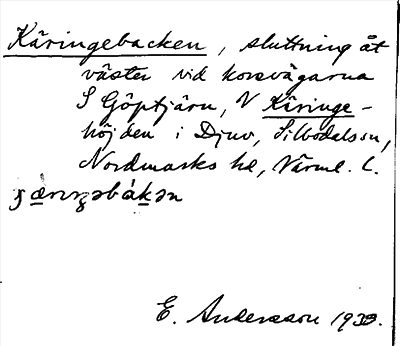 Käringebacken, sluttning åt
väster vid korsvägarna
S Göptjärn, V Käringe-
höjden i Djuv, Silbodals sn,
Nordmarks hd, Värml. l.
E. Andersson 193